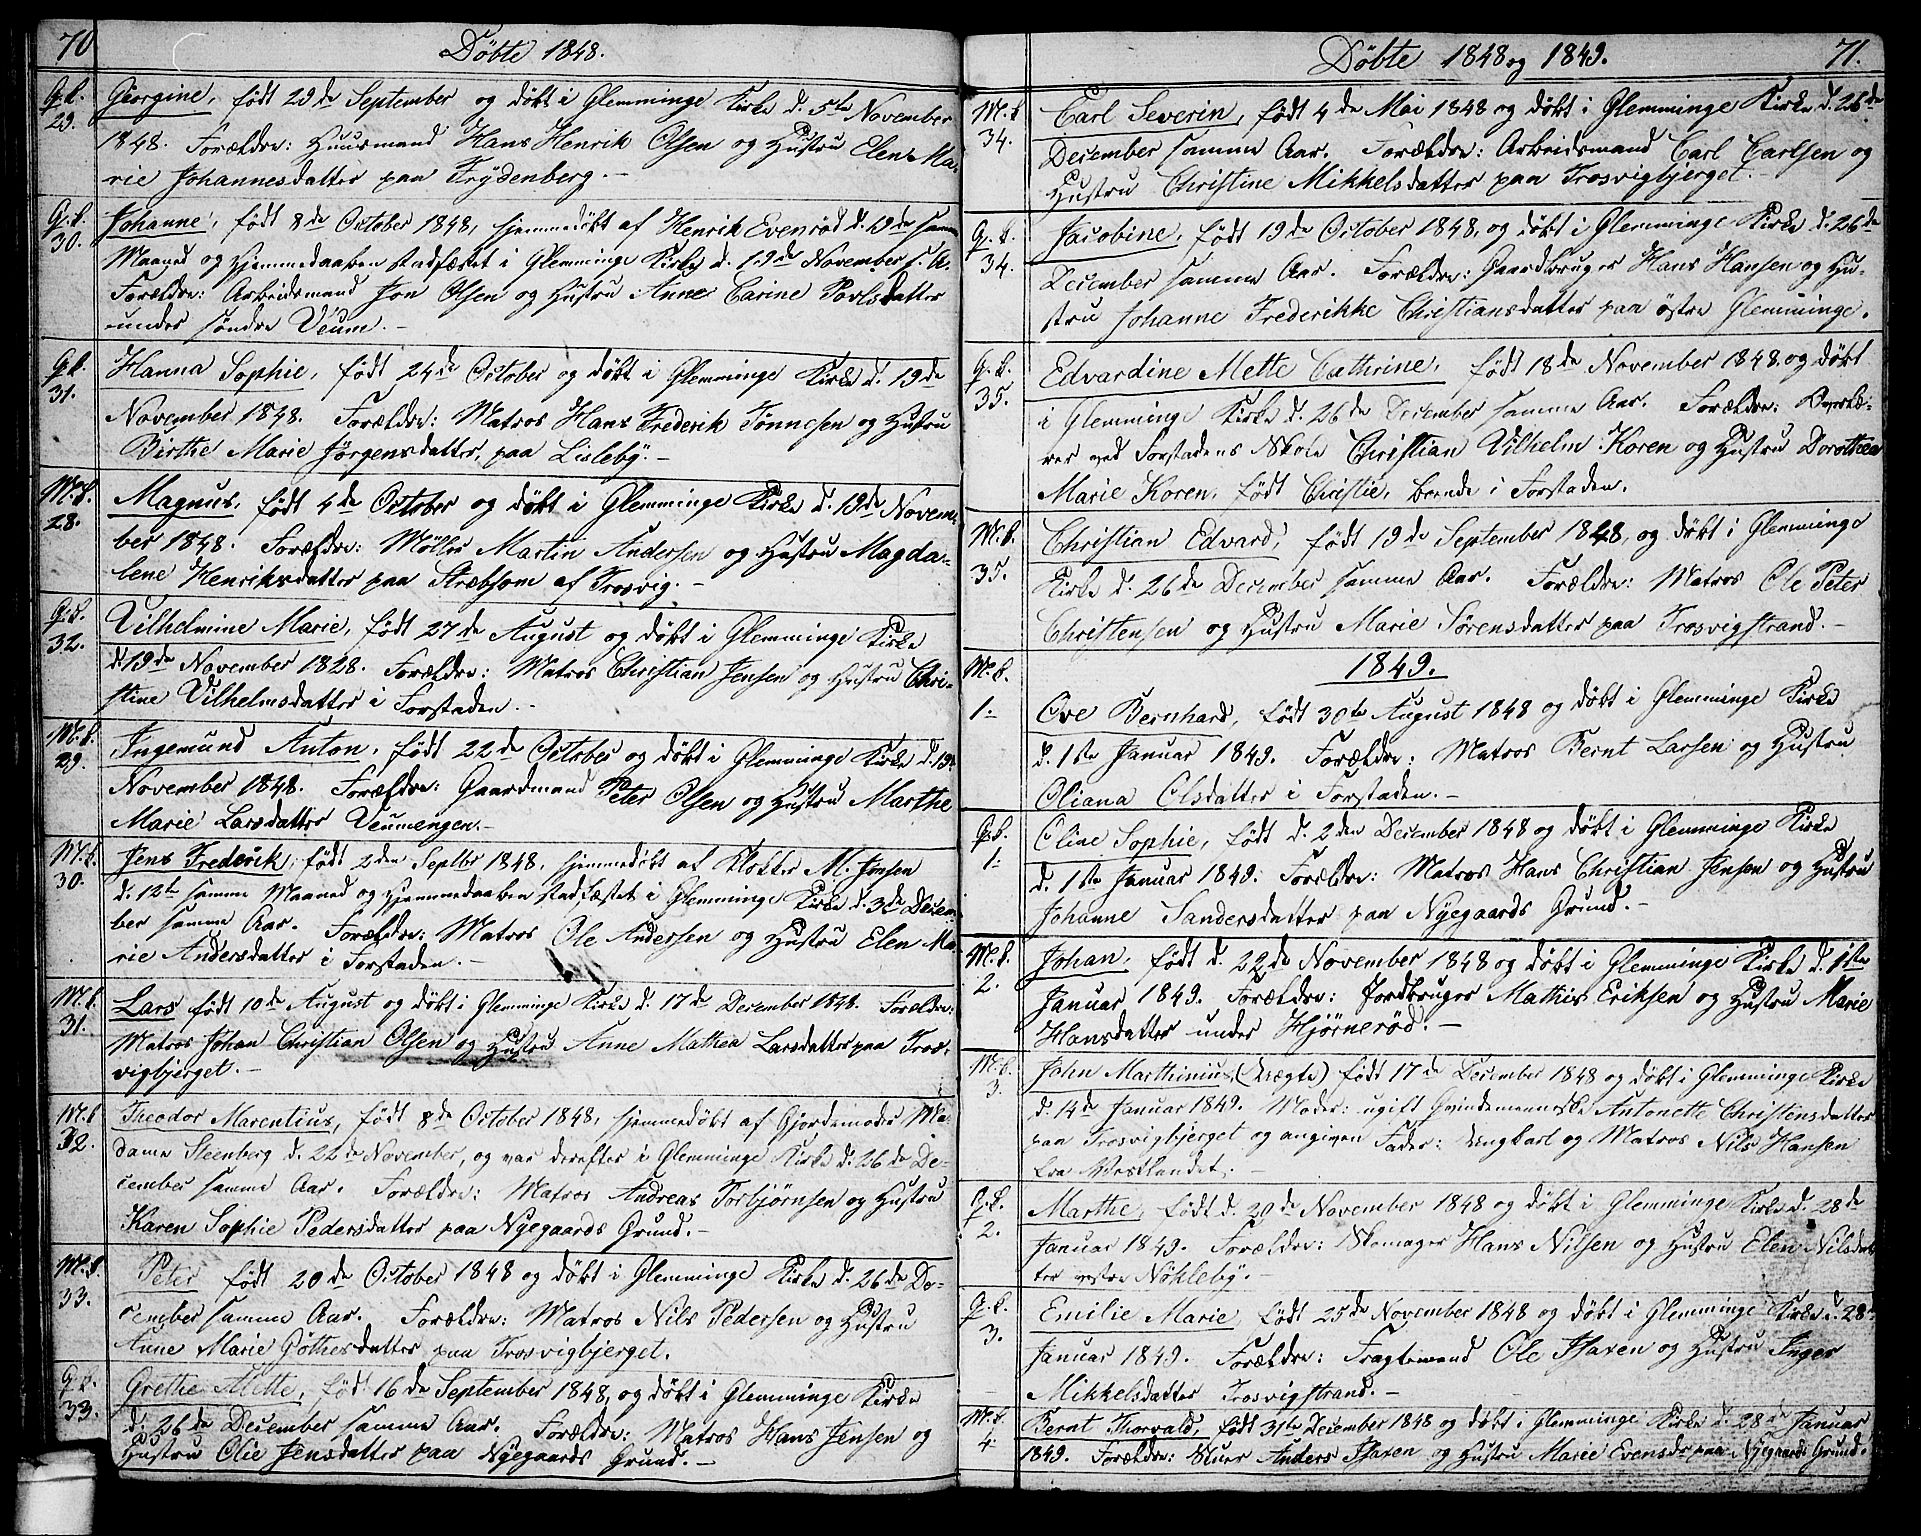 70
Döbte 1848.
Q.k. 29. Georgine, født 29de September og døbt i Glemminge Kirke d. 5te November
1848. Forældre: Huusmand Hans Henrik Olsen og Hustru Elen Ma-
rie Johannesdatter paa Frydenberg.-
Q.k. 30. Johanne, født 8de October 1848, hjemmedøbt af Henrik Evenrød d. 13de samme
Maaned og hjemmedaaben stadfæstet i Glemminge Kirke d. 19de November s. A.
Forældre: Arbeidsmand Jon Olsen og Hustru Anne Carine Povlsdatter
under søndre Veum.-
Q.k. 31. Hanna Sophie, født 24de October og døbt i Glemminge Kirke d. 19de
November 1848. Forældre: Matros Hans Frederik Tønnesen og Hustru
Birthe Marie Jørgensdatter, paa Lisleby.-
M.k. 28. Magnus, født 4de October og døbt i Glemminge Kirke d. 19de Novem-
ber 1848. Forældre: Møller Martin Andersen og Hustru Magda-
lene Henriksdatter paa Stræbsom af Trosvig.-
Q.k. 32. Vilhelmine Marie, født 27de August og døbt i Glemminge Kirke
d. 19de November 1828. Forældre: Matros Christian Jensen og Hustru Chri-
stine Vilhelmsdatter i Forstaden.-
M.k. 29. Ingemund Anton, født 22de October og døbt i Glemminge Kirke d. 19
November 1848. Forældre: Gaardmand Peter Olsen og Hustru Marthe
Marie Larsdatter Veumengen.-
M.k. 30. Jens Frederik, født 2den Septbr 1848, hjemmedøbt af Klokker M. Jensen
d. 12te samme Maaned og hjemmedaaben stadfæstet i Glemminge Kirke d. 3de Decem-
ber samme Aar. Forældre: Matros Ole Andersen og Hustru Elen Ma-
rie Andersdatter i Forstaden.-
M.k. 31. Lars født 10de August og døbt i Glemminge Kirke d. 17de December 1848. Forældre:
Matros Johan Christian Olsen og Hustru Anne Mathea Larsdatter paa Tros-
vigbjerget.-
M.k. 32. Theodor Marentius, født 8de October 1848, hjemmedøbt af Gjordemoder Ma-
dame Steenberg d. 22de November, og var derefter i Glemminge Kirke d. 26de De-
cember samme Aar. Forældre: Matros Andreas Torbjørnsen og Hustru
Karen Sophie Pedersdatter paa Nyegaards Grund.-
M.k. 33. Peter født 20de October 1848 og døbt i Glemminge Kirke d. 26de De-
cember samme Aar. Forældre: Matros Nils Pedersen og Hustru
Anne Marie Göthesdatter paa Trosvigbjerget.
Q.k. 33. Grethe Mette, fød 16de September 1848, og døbt i Glemminge Kirke
d. 26de December samme Aar. Forældre: Matros Hans Jensen og
Hustru Olie Jensdatter paa Nyegaards Grund.-
Döbte 1848 og 1849.
71.
M.k. 34. Carl Severin, født 4de Mai 1848 og døbt i Glemminge Kirke d. 26de
December samme Aar. Forældre: Arbeidsmand Carl Carlsen og
Hustru Christine Mikkelsdatter paa Trosvigbjerget.-
Q.k. 34. Jacobine, født 19de October 1848, og døbt i Glemminge Kirke d. 26de
December samme Aar. Forældre: Gaardbruger Hans Hansen og Hu-
stru Johanne Frederikke Christiansdatter paa østre Glemminge.
Q.k. 35. Edvardine Mette Cathrine, født 18de November 1848 og døbt
i Glemminge Kirke d. 26de December samme Aar. Forældre: Overlæ-
rer ved Forstadens Skole Christian Vilhelm Koren og Hustru Dorothea
Marie Koren, født Christie, boende i Forstaden.
M.k. 35. Christian Edvard, født 19de September 1848, og døbt i Glemminge
Kirke d. 26de December samme Aar. Forældre: Matros Ole Peter
Christensen og Hustru Marie Sørensdatter paa Trosvigstrand.-
1849.
M.k. 1- Ove Bernhard, født 30te August 1848 og døbt i Glemminge Kirke
d. 1ste Januar 1849. Forældre: Matros Bernt Larsen og Hustru
Oliana Olsdatter i Forstaden.-
Q.k. 1. Oline Sophie, født d. 2den December 1848 og døbt i Glemminge Kirke
d. 1ste Januar 1849. Forældre: Matros Hans Christian Jensen og Hustru
Johanne Sandersdatter paa Nyegaards Grund.-
M.k. 2. Johan, født d. 22de November 1848 og døbt i Glemminge Kirke d. 1ste
Januar 1849. Forældre: Jordbruger Mathis Eriksen og Hustru Marie
Hansdatter under Hjørnerød.-
M.k. 3. John Marthinius, (Uægte) født 17de December 1848 og døbt i Glemminge Kirke
d. 14de Januar 1849. Moder: ugift Qvindemenneske Antonette Christensdatter
paa Trosvigbjerget og angiven Fader: Ungkarl og Matros Nils Hansen
fra Vestlandet.-
Q.k. 2. Marthe, født d. 20de November 1848 og døbt i Glemminge Kirke d. 28de
Januar 1849. Forældre: Skomager Hans Nilsen og Hustru Elen Nilsdat-
ter vestre Nøkleby.-
Q.k. 3. Emilie Marie, født 25de November 1848 og døbt i Glemminge Kirke d. 28
Januar 1849. Forældre: Fragtemand Ole Thaxen og Hustru Inger
Mikkelsdatter Trosvigstrand.-
M.k. 4. Bernt Thorvald, født 31te December 1848 og døbt i Glemminge Kirke d. 28de Januar
1849. Forældre: Stuer Anders Thaxen og Hustru Maree Evensdr paa Nyegaards Grund.